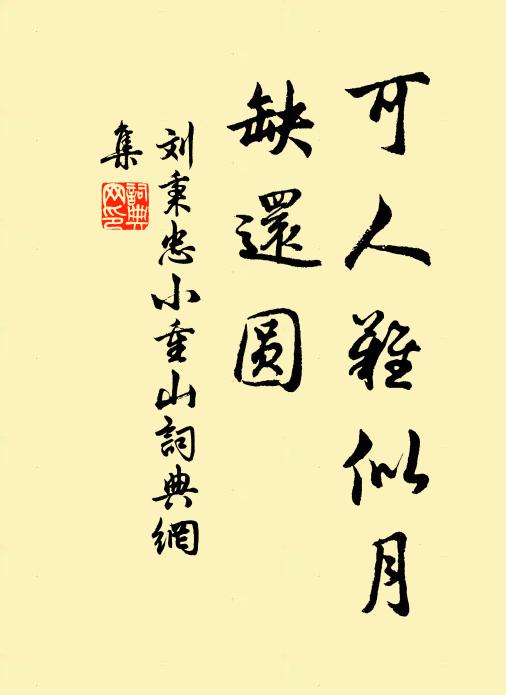 可人難似月
缺還圆
刘秉忠小重山詞典網
集
詞典
网印